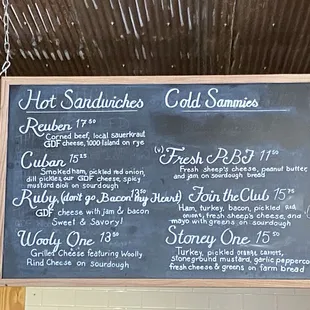 Hot Sandwiches
Reuben 17.50
Corned beef, local sauerkraut
GDF cheese, 1000 Island on rye
Cuban 15
Smoked ham, pickled red onion,
dill pickles, our GDF cheese, spicy
mustard aioli on sourdough
Ruby, (don't go Bacon my Heart) 13.50
GDF cheese with jam & bacon
Sweet & Savory!
Wooly One 13.50
Grilled Cheese featuring Wooly
Rind Cheese on sourdough
Cold Sammies
(v) Fresh PB&J 11.50
Fresh sheep's cheese, peanut butter
and jam on sourdough bread
Join the Club 15.75
Ham, turkey, bacon, pickled red
onions, fresh sheep's cheese, and
mayo with greens on sourdough
Stoney One 15.50
Turkey, pickled carrots,
stoneground mustard, garlic pepperco
fresh cheese & greens on farm bread